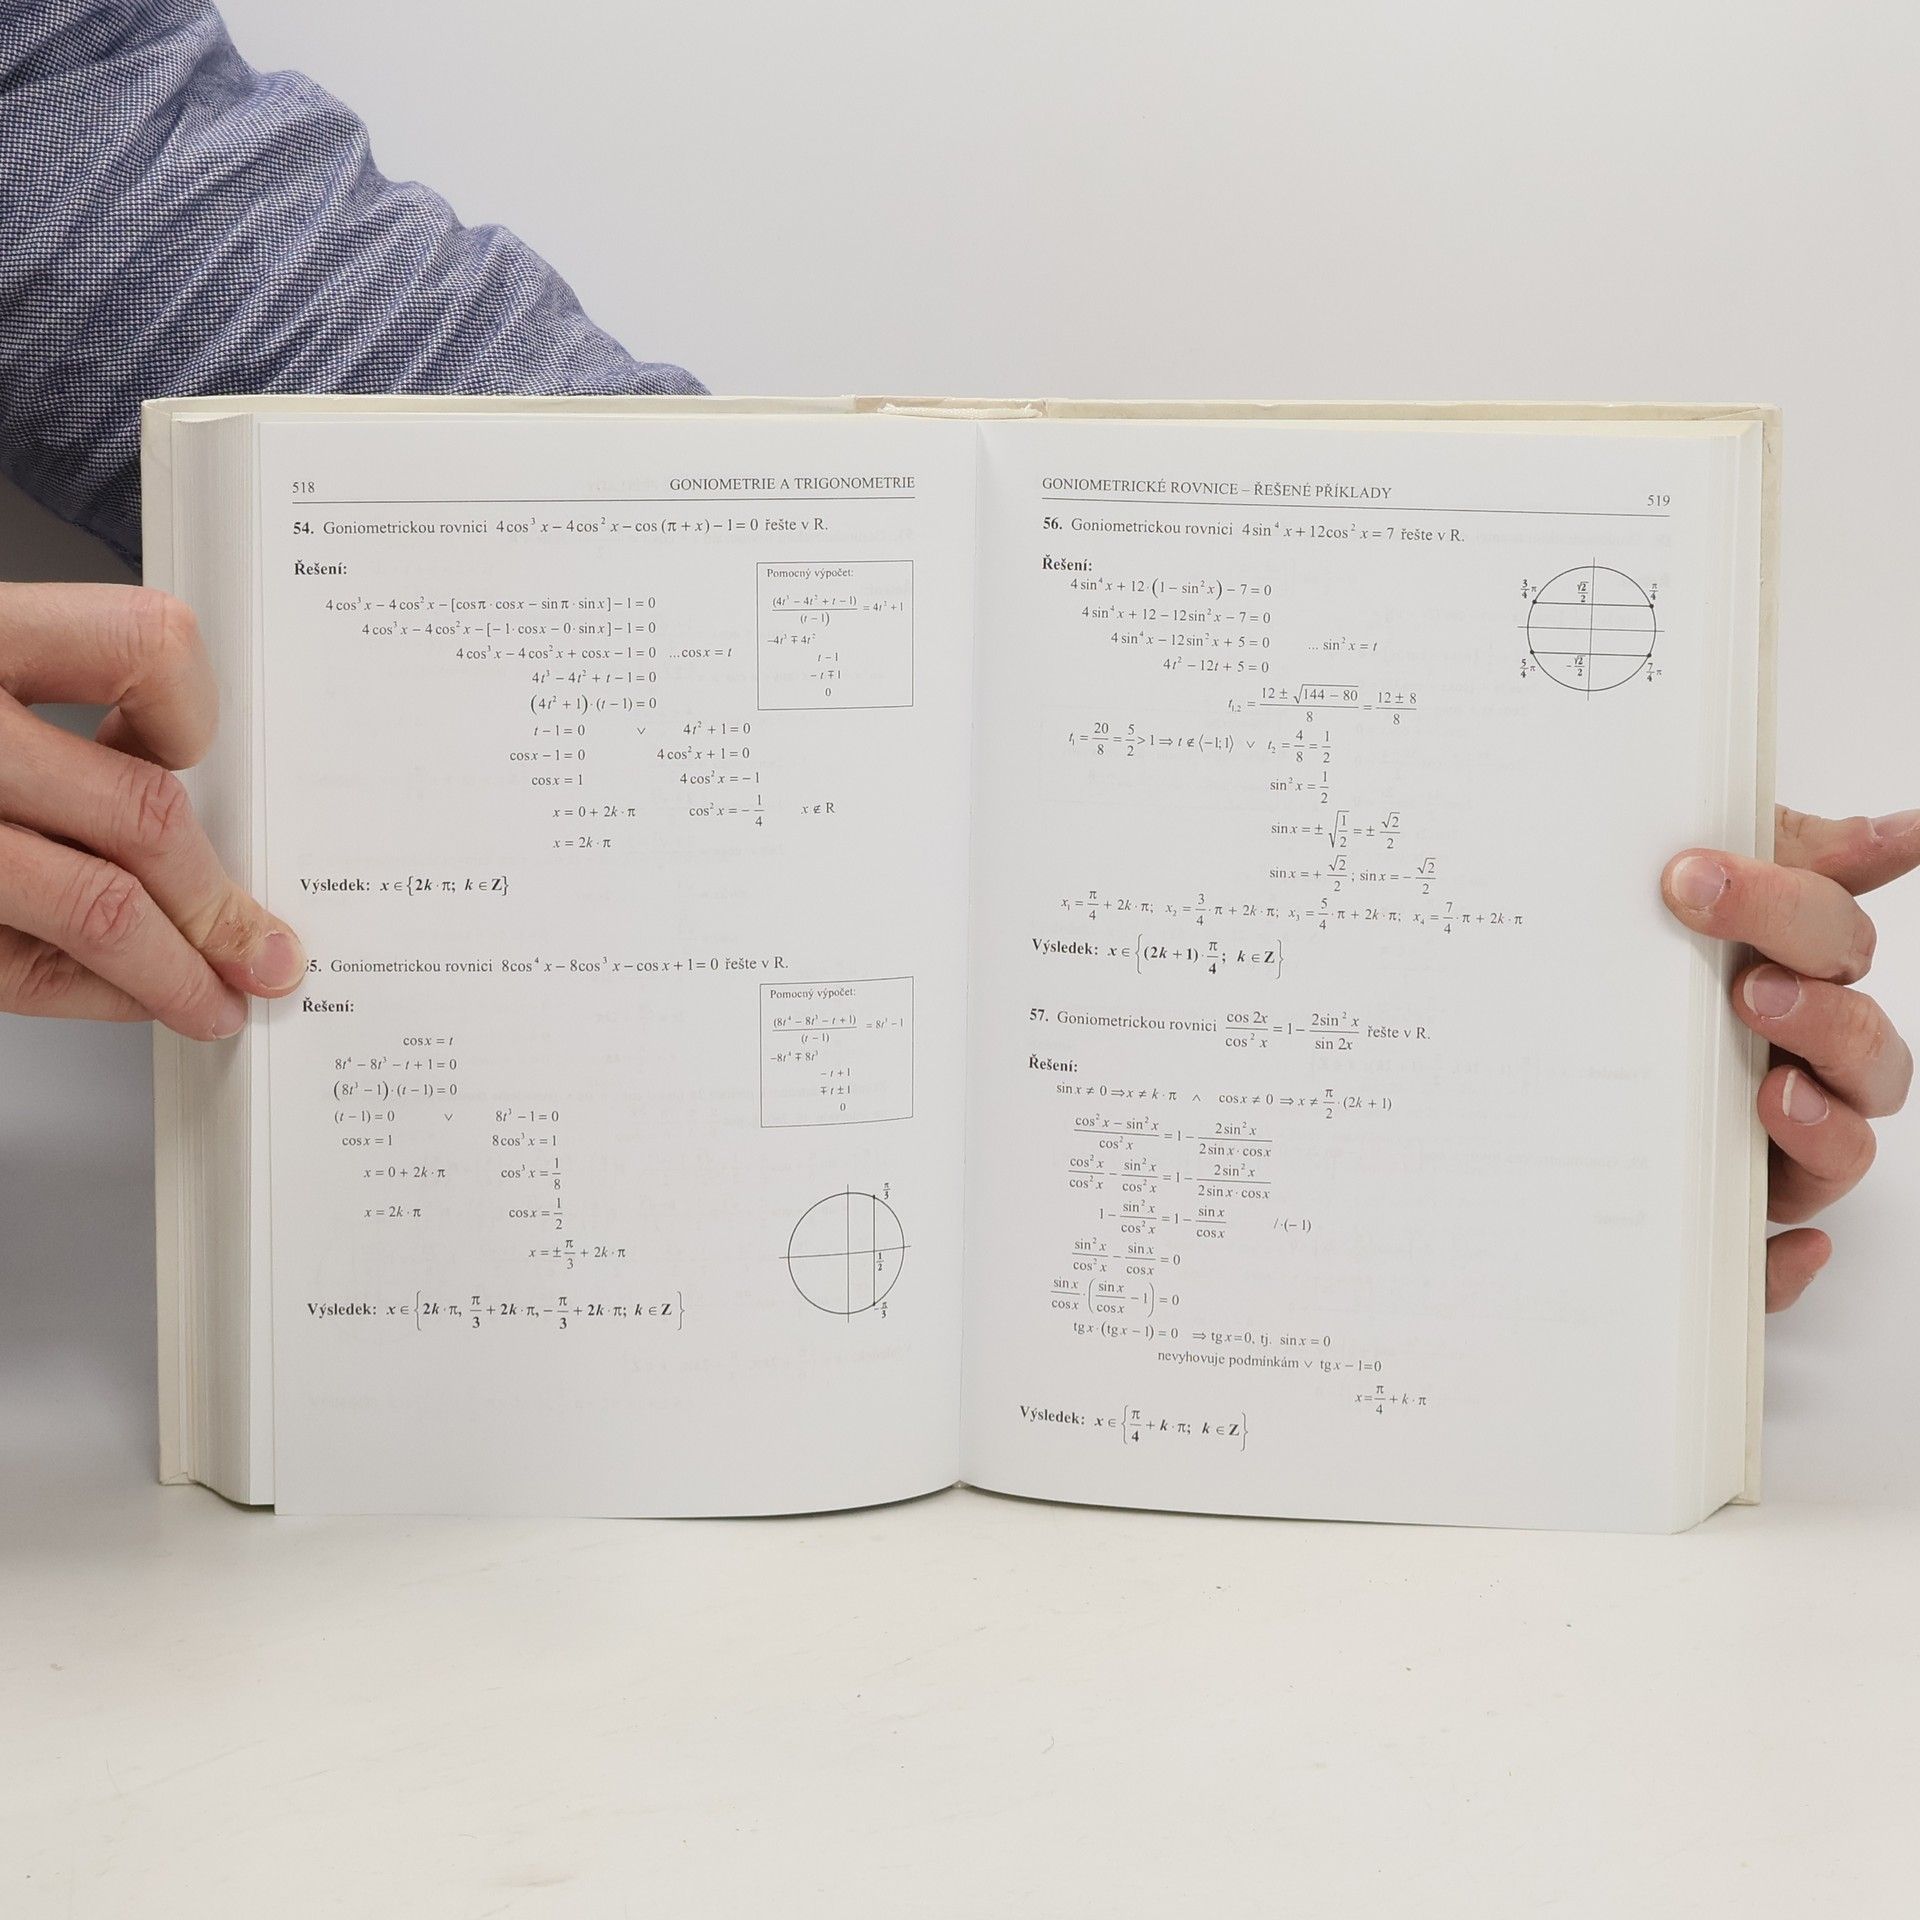 518 GONIOMETRIE A TRIGONOMETRIE
54. Goniometrickou rovnici 4cos³ x – 4cos² x – cos (π + x) – 1 = 0 řešte v R.
Řešení:
4 cos³ x – 4 cos² x – [cos π · cos x – sin π · sin x] – 1 = 0
4 cos³ x – 4 cos² x – [– 1 · cos x – 0 · sin x] – 1 = 0
4 cos³ x – 4 cos² x + cos x – 1 = 0 ...cos x = t
4t³ – 4t² + t – 1 = 0
(4t² + 1) · (t – 1) = 0
t – 1 = 0 ∨ 4t² + 1 = 0
cos x – 1 = 0 4 cos² x + 1 = 0
cos x = 1 4 cos² x = – 1
x = 0 + 2k · π cos² x = – 1/4 x ∉ R
x = 2k · π
Pomocný výpočet:
(4t³ – 4t² + t – 1)/(t – 1) = 4t² + 1
–4t³ ∓ 4t²
t – 1
– t ∓ 1
0
Výsledek: x ∈ {2k · π; k ∈ Z}
5. Goniometrickou rovnici 8cos⁴ x – 8cos³ x – cos x + 1 = 0 řešte v R.
Řešení:
cos x = t
8t⁴ – 8t³ – t + 1 = 0
(8t³ – 1) · (t – 1) = 0
(t – 1) = 0 ∨ 8t³ – 1 = 0
cos x = 1 8 cos³ x = 1
x = 0 + 2k · π cos³ x = 1/8
x = 2k · π cos x = 1/2
x = ± π/3 + 2k · π
Pomocný výpočet:
(8t⁴ – 8t³ – t + 1)/(t – 1) = 8t³ – 1
–8t⁴ ∓ 8t³
– t + 1
∓ t ± 1
0
π/3
1/2
–π/3
Výsledek: x ∈ {2k · π, π/3 + 2k · π, – π/3 + 2k · π; k ∈ Z}
GONIOMETRICKÉ ROVNICE – ŘEŠENÉ PŘÍKLADY 519
56. Goniometrickou rovnici 4 sin⁴ x + 12cos² x = 7 řešte v R.
Řešení:
4 sin⁴ x + 12 · (1 – sin² x) – 7 = 0
4 sin⁴ x + 12 – 12 sin² x – 7 = 0
4 sin⁴ x – 12 sin² x + 5 = 0 ... sin² x = t
4t² – 12t + 5 = 0
t₁,₂ = (12 ± √(144 – 80))/8 = (12 ± 8)/8
t₁ = 20/8 = 5/2 > 1 ⇒ t ∉ ⟨–1; 1⟩ ∨ t₂ = 4/8 = 1/2
sin² x = 1/2
sin x = ± √(1/2) = ± √2/2
sin x = + √2/2 ; sin x = – √2/2
x₁ = π/4 + 2k · π; x₂ = 3/4 · π + 2k · π; x₃ = 5/4 · π + 2k · π; x₄ = 7/4 · π + 2k · π
3/4 π √2/2 π/4
5/4 π –√2/2 7/4 π
Výsledek: x ∈ {(2k + 1) · π/4; k ∈ Z}
57. Goniometrickou rovnici cos 2x/cos² x = 1 – 2sin² x/sin 2x řešte v R.
Řešení:
sin x ≠ 0 ⇒ x ≠ k · π ∧ cos x ≠ 0 ⇒ x ≠ π/2 · (2k + 1)
(cos² x – sin² x)/cos² x = 1 – 2 sin² x/(2 sin x · cos x)
cos² x/cos² x – sin² x/cos² x = 1 – 2 sin² x/(2 sin x · cos x)
1 – sin² x/cos² x = 1 – sin x/cos x / · (– 1)
sin² x/cos² x – sin x/cos x = 0
sin x/cos x · (sin x/cos x – 1) = 0
tg x · (tg x – 1) = 0 ⇒ tg x = 0, tj. sin x = 0
nevyhovuje podmínkám ∨ tg x – 1 = 0
x = π/4 + k · π
Výsledek: x ∈ {π/4 + k · π; k ∈ Z}